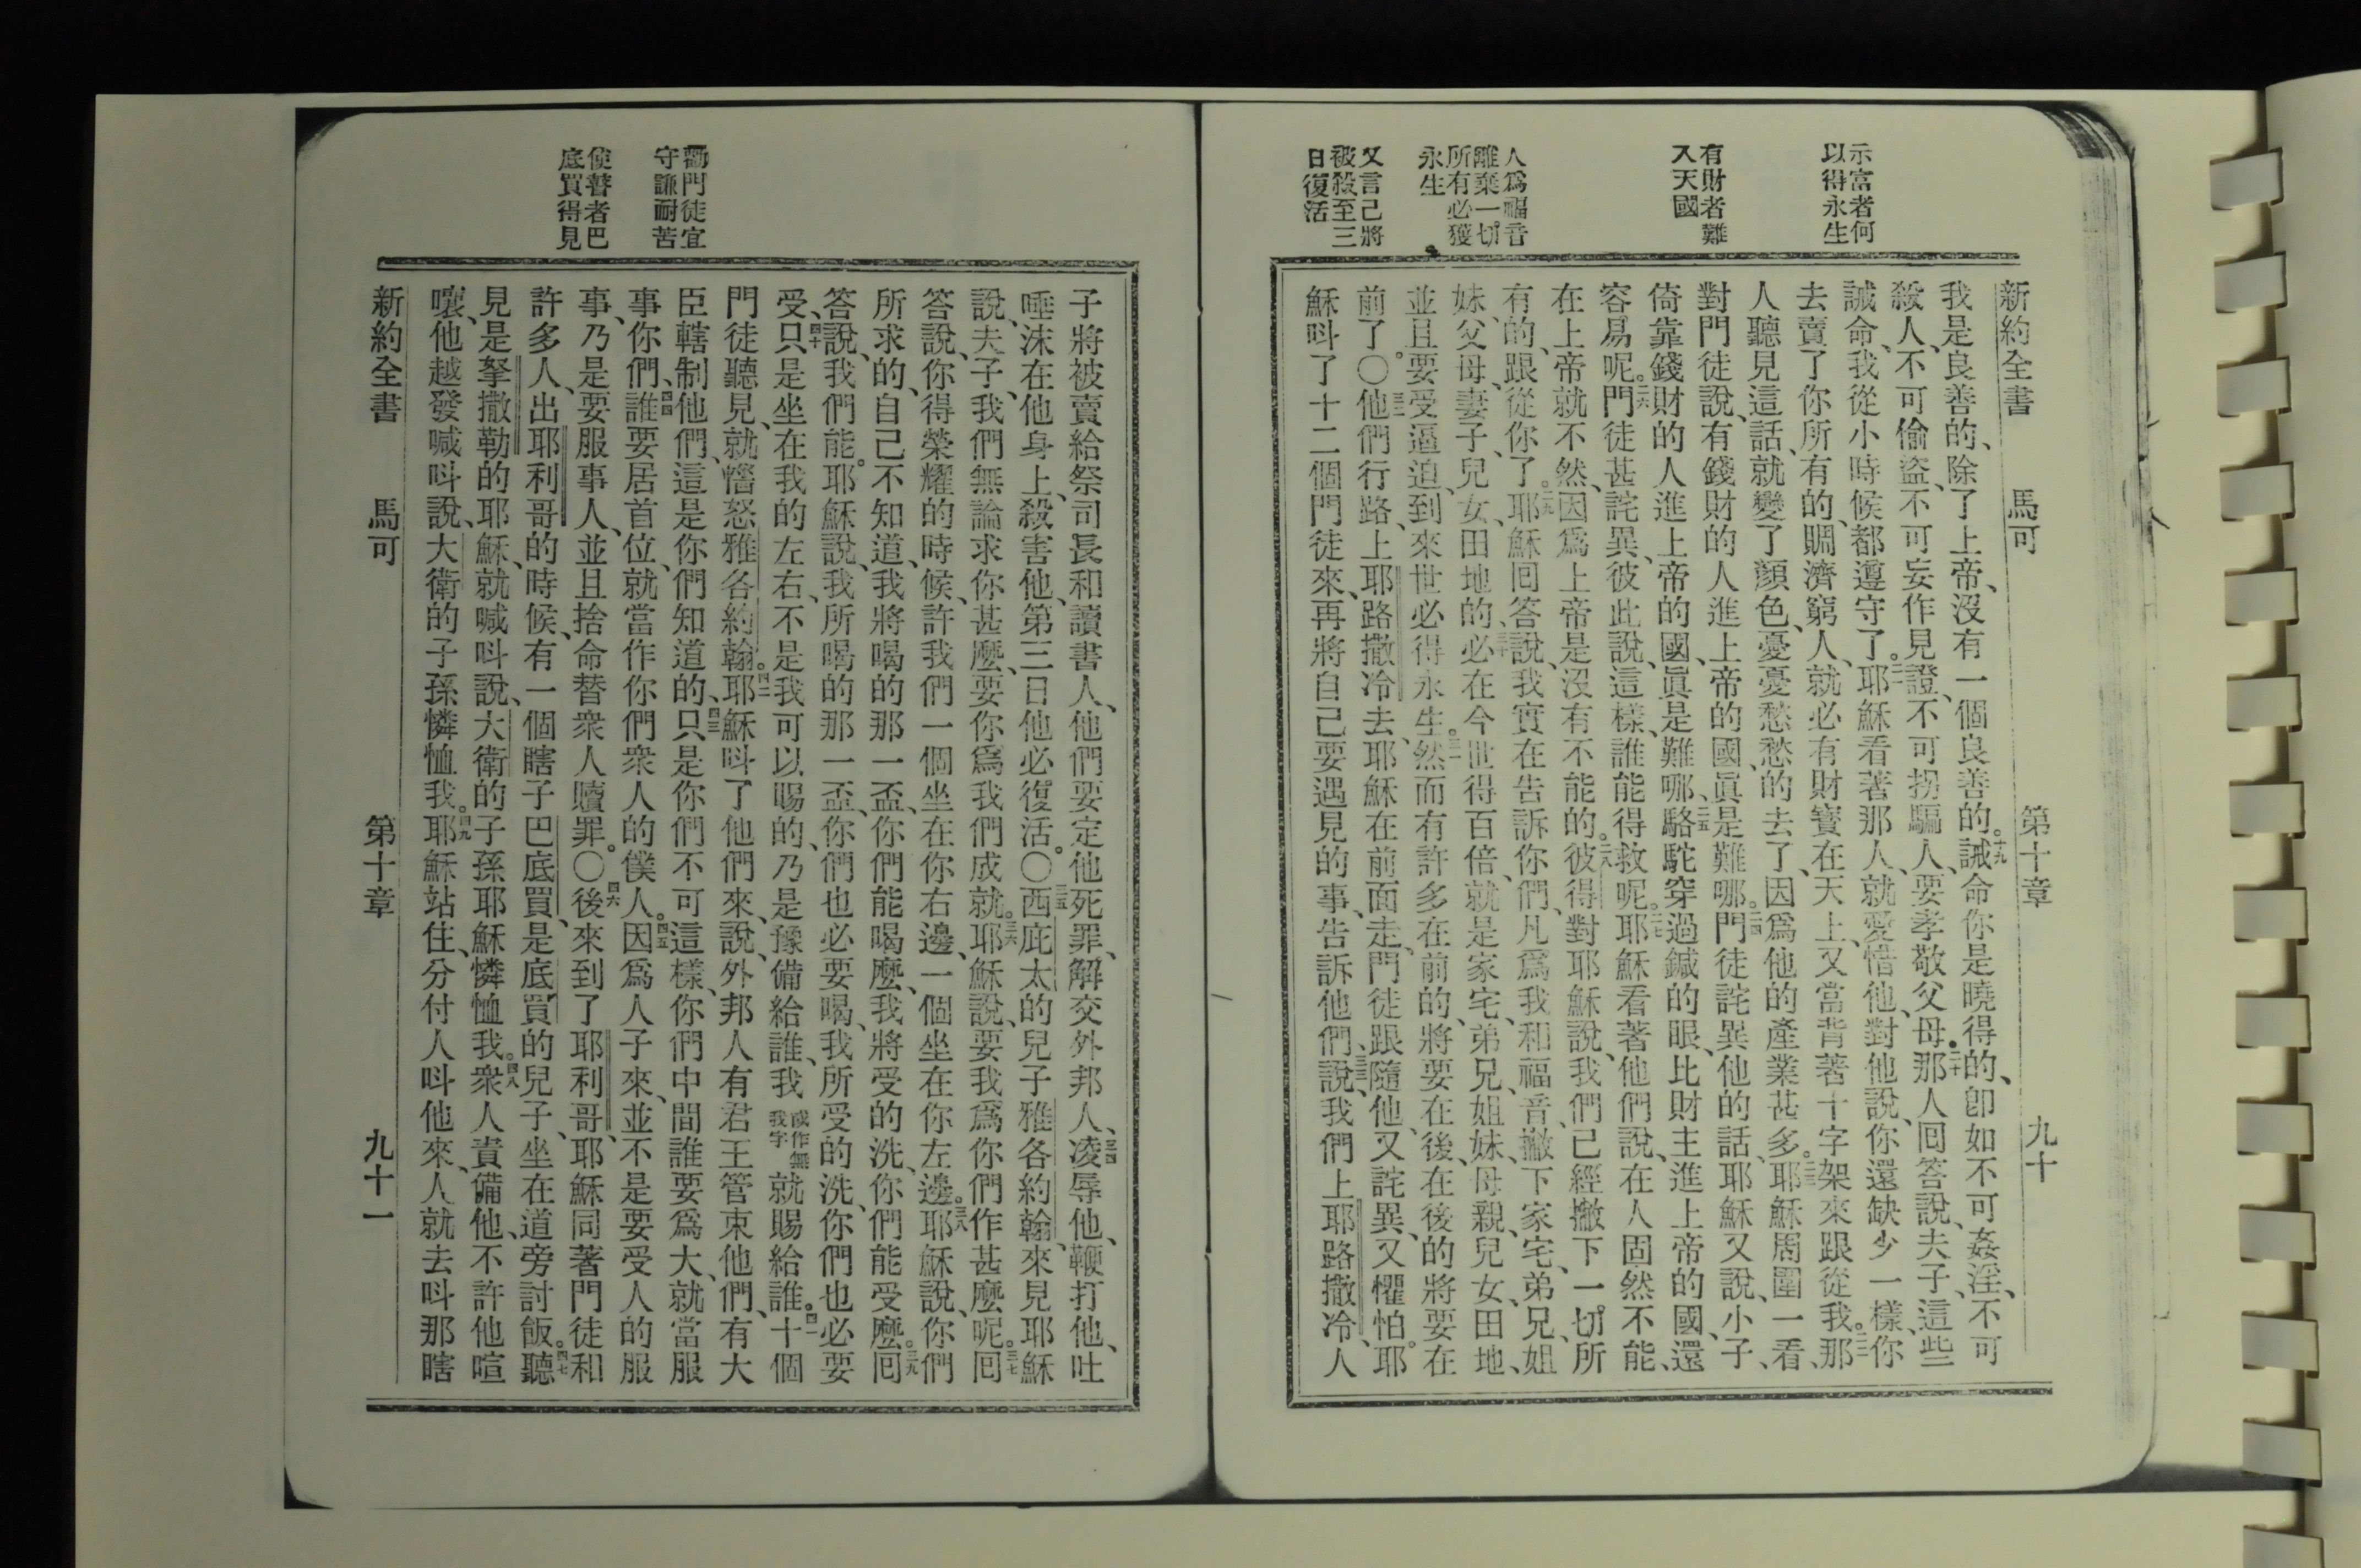 示富者何
以得永生
有財者難
入天國
人爲福音
離棄一切
所有必獲
永生
又言己將
被殺至三
日復活
新約全書 馬可 第十章 九十
我是良善的、除了上帝、沒有一個良善的。十九誡命你是曉得的、卽如不可姦淫、不可
殺人、不可偷盜、不可妄作見證、不可拐騙人、要孝敬父母。二十那人回答說、夫子、這些
誡命、我從小時候都遵守了。二一耶穌看著那人、就愛惜他、對他說、你還缺少一樣、你
去賣了你所有的、賙濟窮人、就必有財寶在天上、又當背著十字架來跟從我。二二那
人聽見這話、就變了顏色、憂憂愁愁的去了、因爲他的產業甚多。二三耶穌周圍一看、
對門徒說、有錢財的人進上帝的國、眞是難哪。二四門徒詫異他的話、耶穌又說、小子、
倚靠錢財的人進上帝的國、眞是難哪、二五駱駝穿過鍼的眼、比財主進上帝的國、還
容易呢。二六門徒甚詫異、彼此說、這樣、誰能得救呢。二七耶穌看著他們說、在人固然不能、
在上帝就不然、因爲上帝是沒有不能的。二八彼得對耶穌說、我們已經撇下一切所
有的、跟從你了。二九耶穌回答說、我實在告訴你們、凡爲我和福音、撇下家宅、弟兄、姐
妹、父母、妻子、兒女、田地的、三十必在今世得百倍、就是家宅、弟兄、姐妹、母親、兒女、田地、
並且要受逼迫、到來世必得永生。三一然而有許多在前的、將要在後、在後的將要在
前了。〇三二他們行路、上耶路撒冷去、耶穌在前面走、門徒跟隨他、又詫異、又懼怕。耶
穌呌了十二個門徒來、再將自己要遇見的事、告訴他們、三三說、我們上耶路撒冷、人
勸門徒宜
守謙耐苦
使瞽者巴
底買得見
子將被賣給祭司長和讀書人、他們要定他死罪、解交外邦人、三四凌辱他、鞭打他、吐
唾沫在他身上、殺害他、第三日他必復活。〇三五西庇太的兒子雅各約翰、來見耶穌
說、夫子、我們無論求你甚麼、要你爲我們成就。三六耶穌說、要我爲你們作甚麼呢。三七回
答說、你得榮耀的時候、許我們一個坐在你右邊、一個坐在你左邊。三八耶穌說、你們
所求的、自己不知道、我將喝的那一盃、你們能喝麼、我將受的洗、你們能受麼。三九回
答說、我們能。耶穌說、我所喝的那一盃、你們也必要喝、我所受的洗、你們也必要
受、四十只是坐在我的左右、不是我可以賜的、乃是豫備給誰、我或作無我字就賜給誰。四一十個
門徒聽見、就惱怒雅各約翰。四二耶穌呌了他們來、說、外邦人有君王管束他們、有大
臣轄制他們、這是你們知道的、四三只是你們不可這樣、你們中間誰要爲大、就當服
事你們、四四誰要居首位、就當作你們衆人的僕人。四五因爲人子來、並不是要受人的服
事、乃是要服事人、並且捨命替衆人贖罪。〇四六後來到了耶利哥、耶穌同著門徒和
許多人、出耶利哥的時候、有一個瞎子巴底買、是底買的兒子、坐在道旁討飯。四七聽
見是拏撒勒的耶穌、就喊呌說、大衛的子孫耶穌憐恤我。四八衆人責備他、不許他喧
嚷、他越發喊呌說、大衛的子孫憐恤我。四九耶穌站住、分付人呌他來、人就去呌那瞎
新約全書 馬可 第十章 九十一